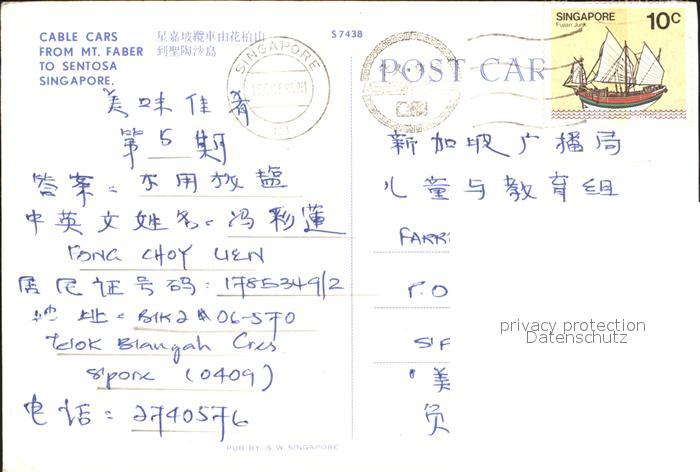 CABLE CARS
FROM MT. FABER
TO SENTOSA
SINGAPORE.
星嘉坡纜車由花柏山
到聖陶沙島
S7438
SINGAPORE
POST CAR
SINGAPORE 10c
Fujian Junk
美味佳肴
第5期
答案：不用放鹽
中英文姓名：冯彩蓮
FONG CHOY LIEN
居民证号码：1785349/2
地址：BLK 2 # 06-570
Telok Blangah Cres
S'pore (0409)
电话：2740576
PUB. BY:- S. W. SINGAPORE
新加坡广播局
儿童与教育组
FARR
P.O
美
负
privacy protection
Datenschutz